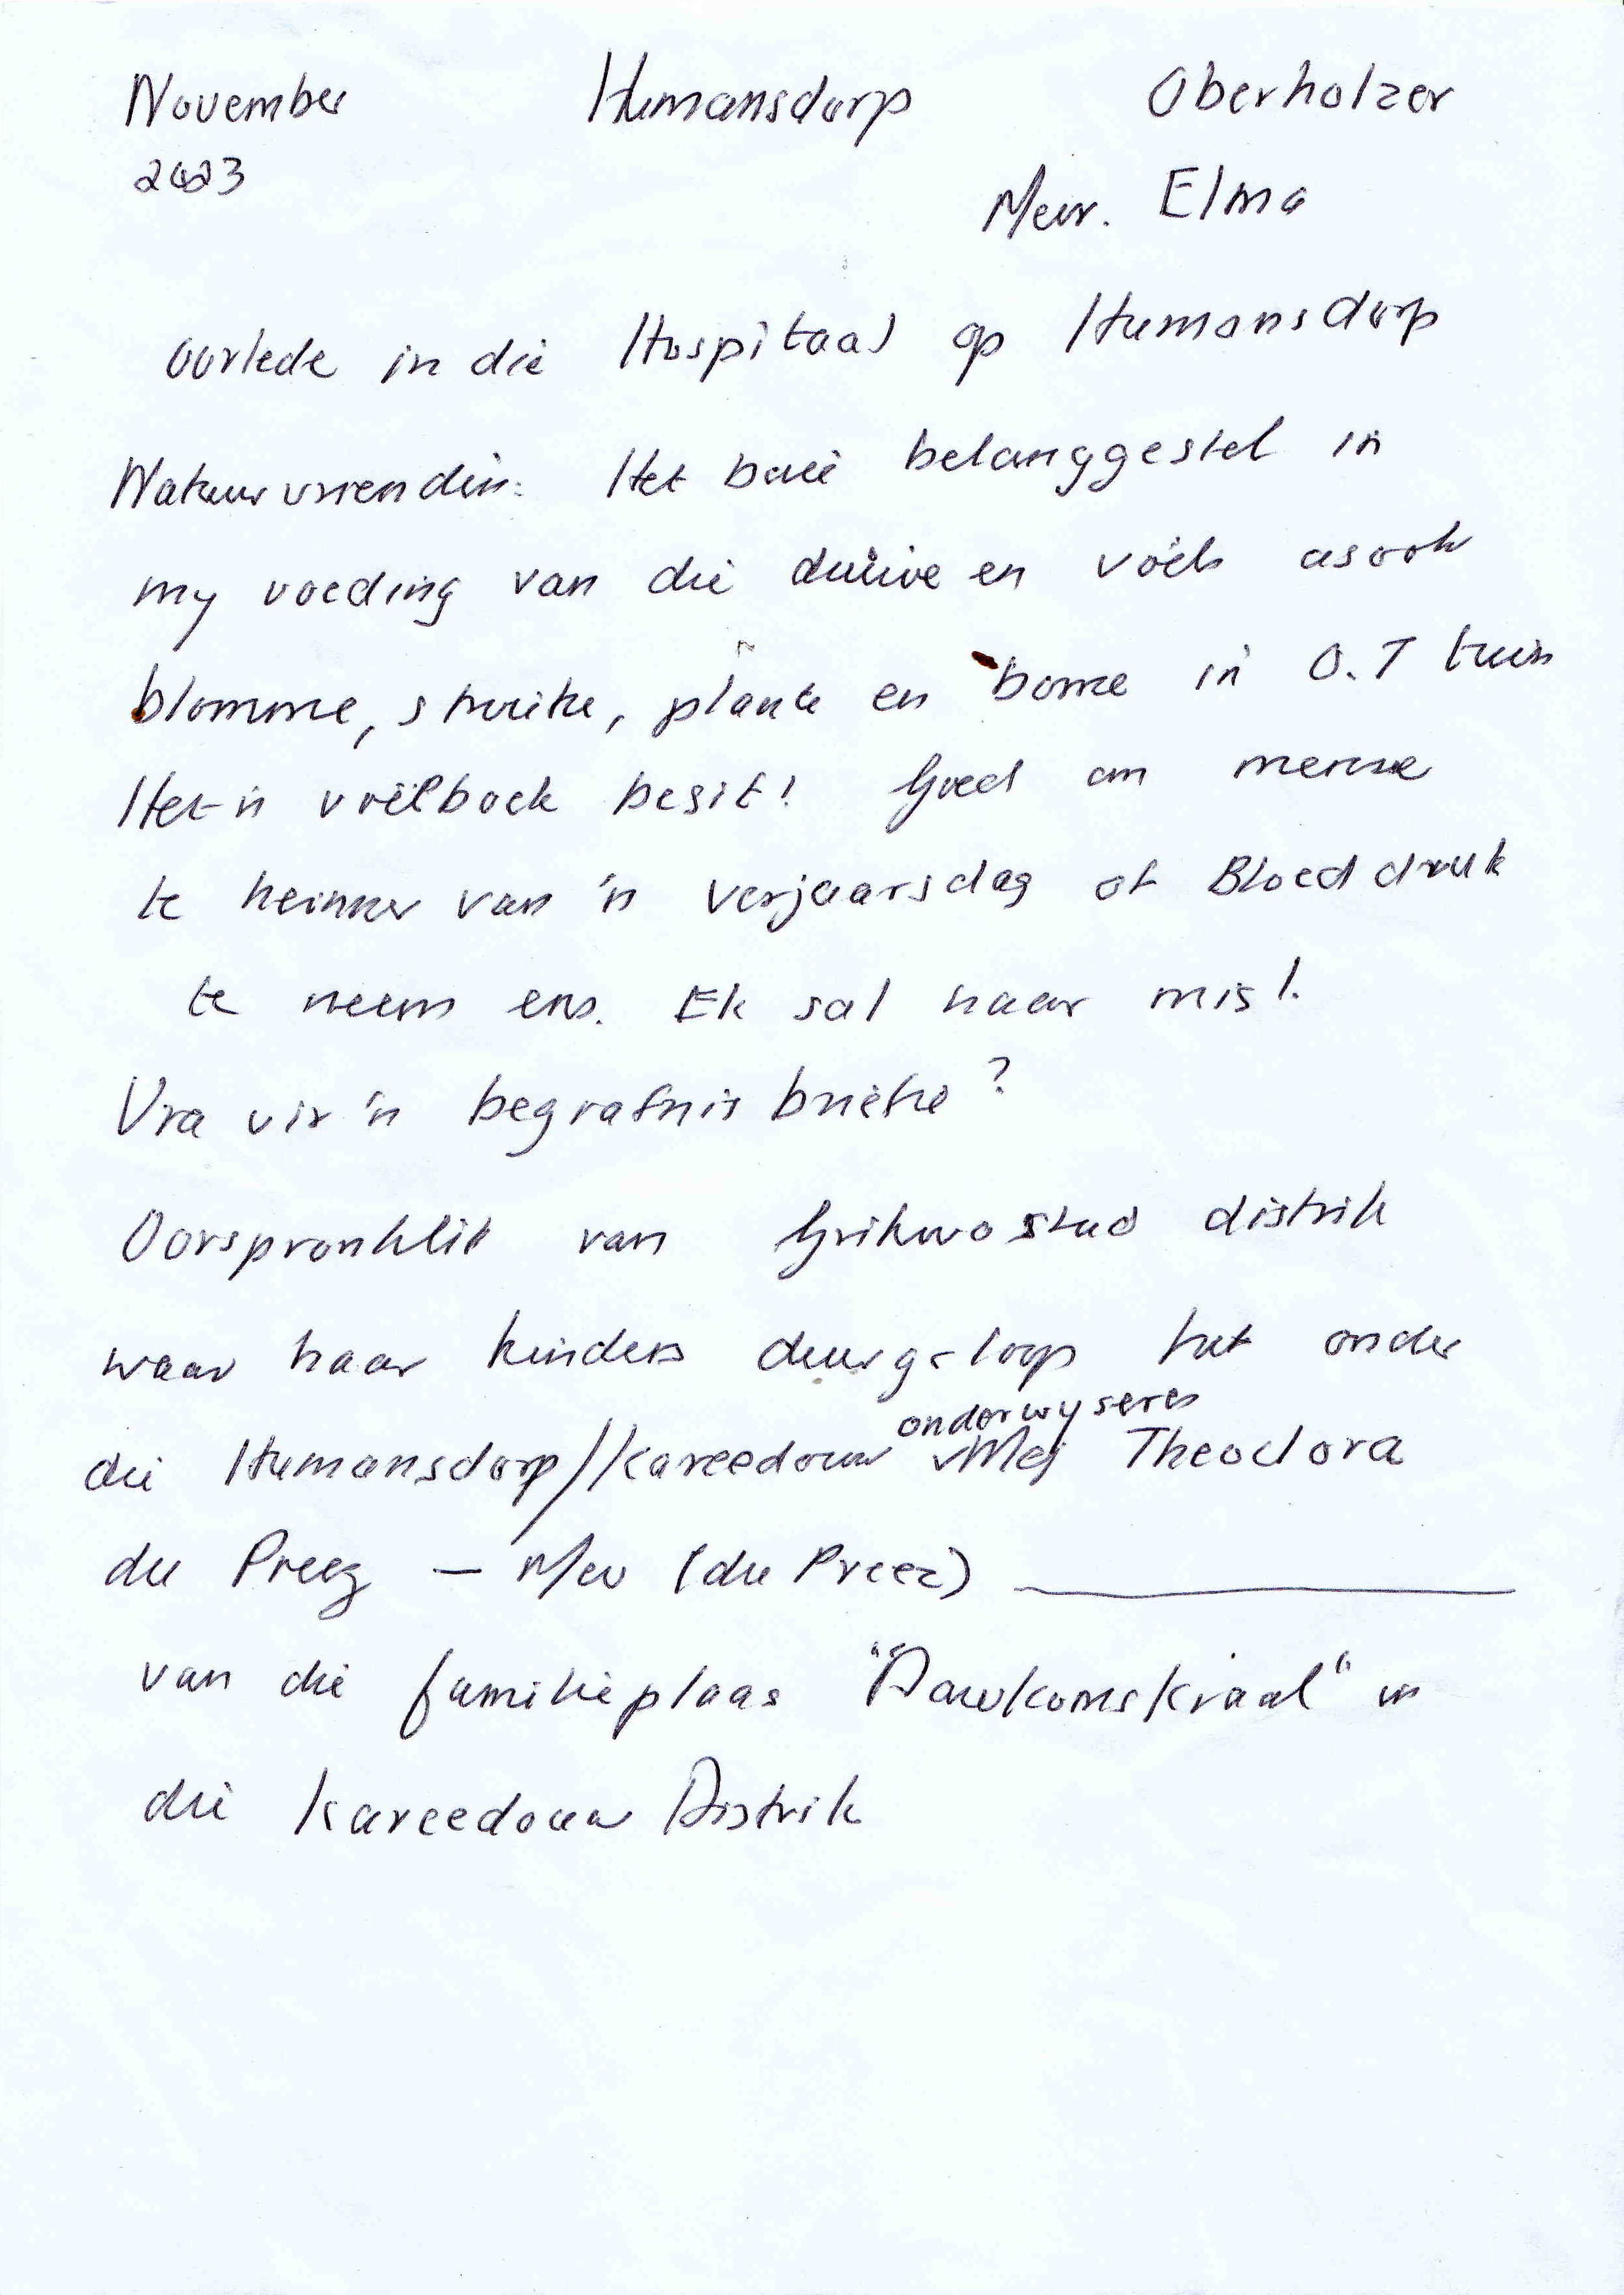 November Humansdorp Oberholzer
2023
Mevr. Elma
Oorlede in die Hospitaal op Humansdorp
Natuurvriendin: Het baie belanggestel in
my voeding van die duiwe en voëls asook
blomme, struike, plante en bome in O.T tuin
Het 'n voëlboek besit! Goed om mense
te herinner van 'n verjaarsdag of Bloeddruk
te neem ens. Ek sal haar mis!
Vra vir 'n begrafnis briefie?
Oorspronklik van Grikwastad distrik
waar haar kinders deurgeloop het onder
onderwyseres
die Humansdorp/Kareedouw Mej Theodora
du Preez – Mev (du Preez) ________
van die familieplaas "Doukomskraal" in
die Kareedouw Distrik